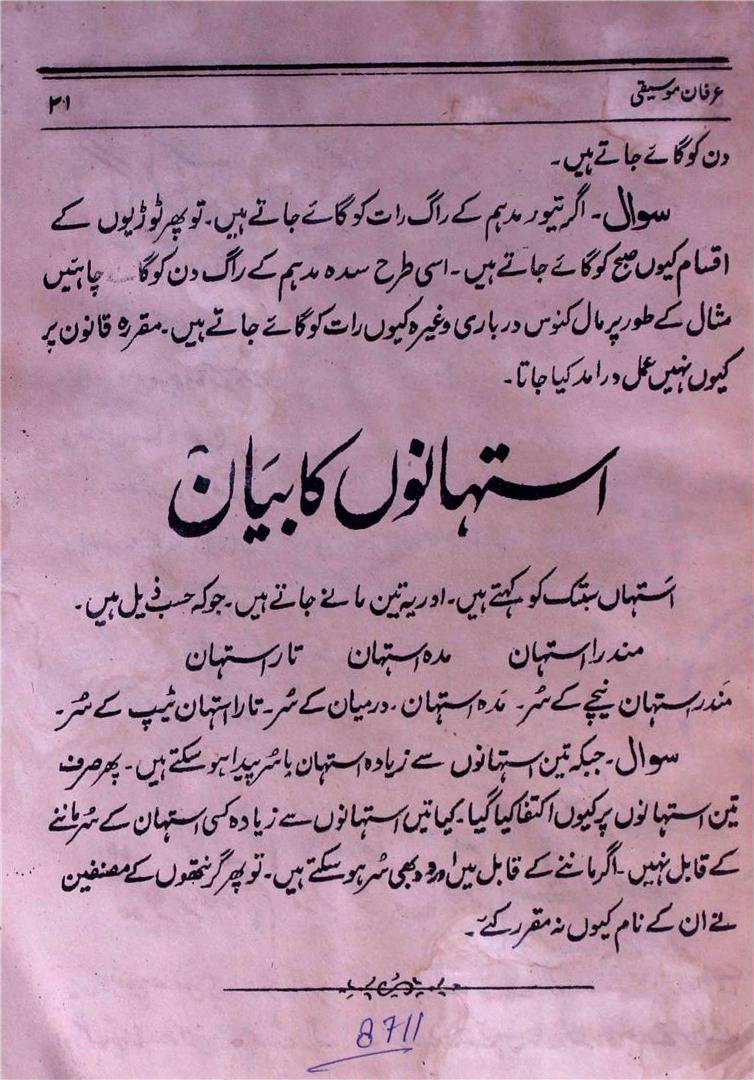 عرفان موسیقی
۲۱
دن کو گائے جاتے ہیں۔
سوال۔ اگر تیور مدہم کے راگ رات کو گائے جاتے ہیں۔ تو پھر ٹوڑیوں کے
اقسام کیوں صبح کو گائے جاتے ہیں۔ اسی طرح سدہ مدہم کے راگ دن کو گا چاہئیں
مثال کے طور پر مال کنوس درباری وغیرہ کیوں رات کو گائے جاتے ہیں۔ مقررہ قانون پر
کیوں نہیں عمل درامد کیا جاتا۔
استہانوں کا بیان
استہاں سبتک کو کہتے ہیں۔ اور یہ تین مانے جاتے ہیں۔ جو کہ حسب ذیل ہیں۔
مندر استہان مدہ استہان تار استہان
مندر استہان نیچے کے سُر۔ مدہ استہان۔ درمیان کے سُر۔ تار استہان ٹیپ کے سُر۔
سوال۔ جبکہ تین استہانوں سے زیادہ استہان یا سُر پیدا ہو سکتے ہیں۔ پھر صرف
تین استہانوں پر کیوں اکتفا کیا گیا۔ کیا تیں استہانوں سے زیادہ کسی استہان کے سُر ماننے
کے قابل نہیں۔ اگر ماننے کے قابل ہیں اور وہ بھی سُر ہو سکتے ہیں۔ تو پھر گرنتھوں کے مصنفین
نے ان کے نام کیوں نہ مقرر کئے۔
8711